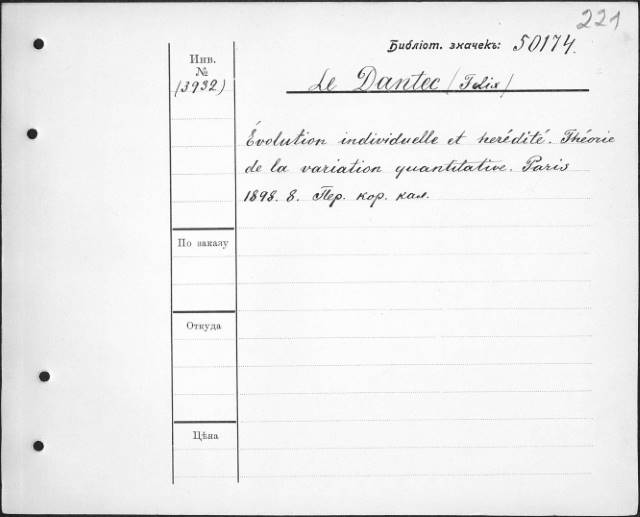 221
Библіот. значекъ: 50174.
Инв.
№
(3932)
Le Dantec (Felix)
Évolution individuelle et herédité. Théorie
de la variation quantitative. Paris
1898. 8. Пер. кор. кал.
По заказу
Откуда
Цѣна